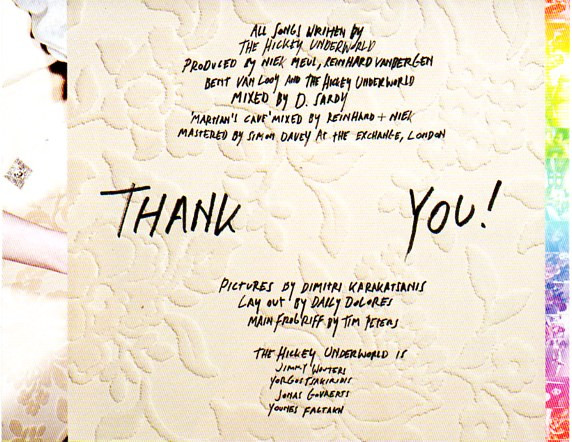 ALL SONGS WRITTEN BY
THE HICKEY UNDERWORLD
PRODUCED BY NIEK MEUL, REINHARD VANDERGEN
BENT VAN LOOY AND THE HICKEY UNDERWORLD
MIXED BY D. SARDY
'MARTIAN'S CAVE' MIXED BY REINHARD + NIEK
MASTERED BY SIMON DAVEY AT THE EXCHANGE, LONDON
THANK YOU!
PICTURES BY DIMITRI KARAKATSANIS
LAY OUT BY DAILY DOLORES
MAIN FROG RIFF BY TIM PETERS
THE HICKEY UNDERWORLD IS
JIMMY WOUTERS
YORGOS TSAKIRIDIS
JONAS GOVAERTS
YOUNES FALTAKH